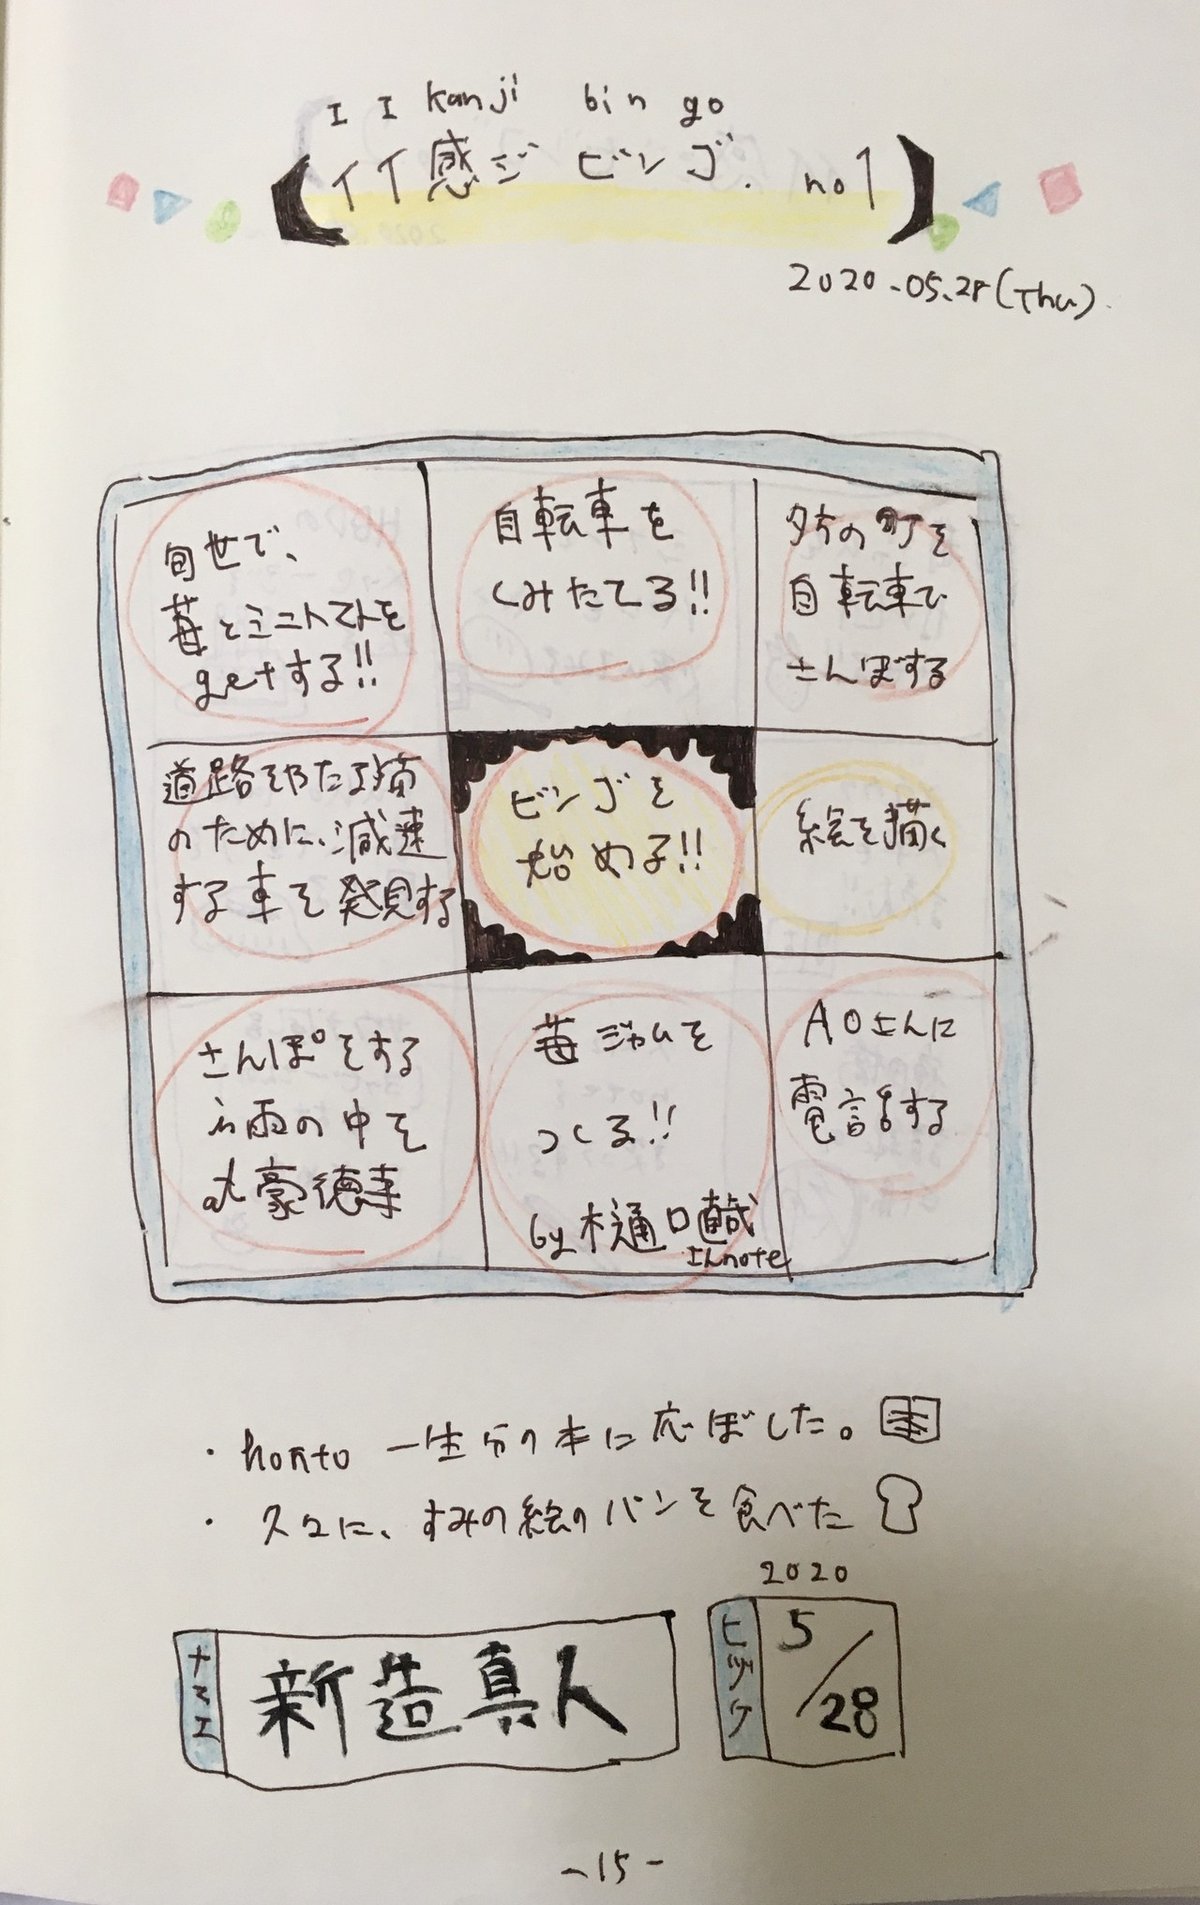 I I kanji bingo
イイ感ジ ビンゴ. no1
2020.05.28(Thu).
旬世で、
苺とミニトマトを
getする!!
自転車を
くみたてる!!
夕方の町を
自転車で
さんぽする
道路をわたる猫
のために、減速
する車を発見する
ビンゴを
始める!!
絵を描く
さんぽをする
雨の中を
at 豪徳寺
苺ジャムを
つくる!!
by 樋口直哉
さんnote
AOさんに
電話する
・honto 一生分の本に応ぼした。本
・スタに、すみの絵のパンを食べた
ナマエ
新造真人
2020
ヒヅケ
5/28
-15-